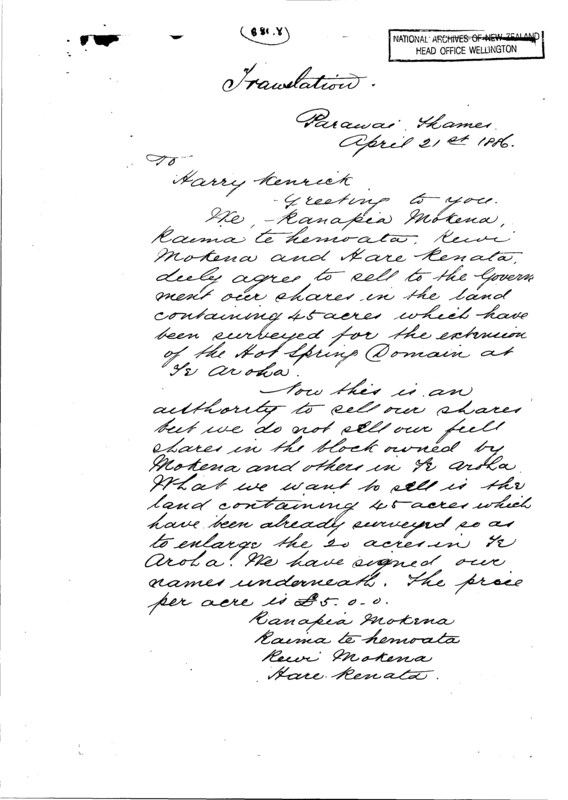 (881.Y)
NATIONAL ARCHIVES OF NEW ZEALAND
HEAD OFFICE WELLINGTON
Translation.
Parawai Thames
April 21st 1886.
To
Harry Kenrick
Greeting to you.
We, Ranapia Mokena,
Raima te hemoata, Rewi
Mokena and Hare Renata,
duly agree to sell to the Govern
ment our shares in the land
containing 45 acres which have
been surveyed for the extension
of the Hot Spring Domain at
Te Aroha.
Now this is an
authority to sell our shares
but we do not sell our full
shares in the block owned by
Mokena and others in Te Aroha
What we want to sell is the
land containing 45 acres which
have been already surveyed so as
to enlarge the 20 acres in Te
Aroha. We have signed our
names underneath. The price
per acre is £5. 0. 0.
Ranapia Mokena
Raima te hemoata
Rewi Mokena
Hare Renata.